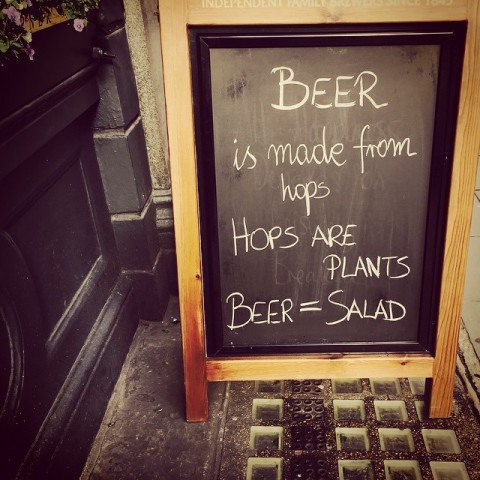 INDEPENDENT FAMILY BREWERS SINCE 1845
BEER
is made from
hops
HOPS ARE
PLANTS
BEER = SALAD